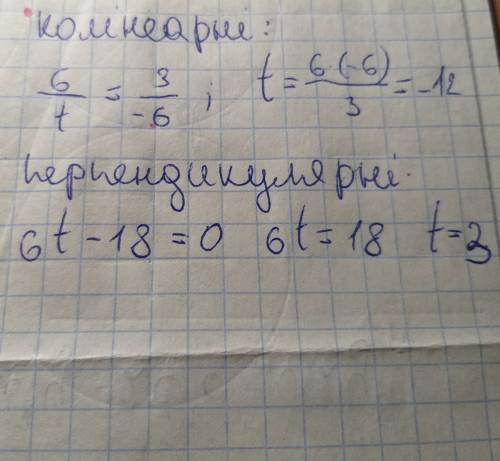 колінеарні:
6/t = 3/-6 ; t = 6·(-6)/3 = -12
перпендикулярні.
6t - 18 = 0 6t = 18 t = 3